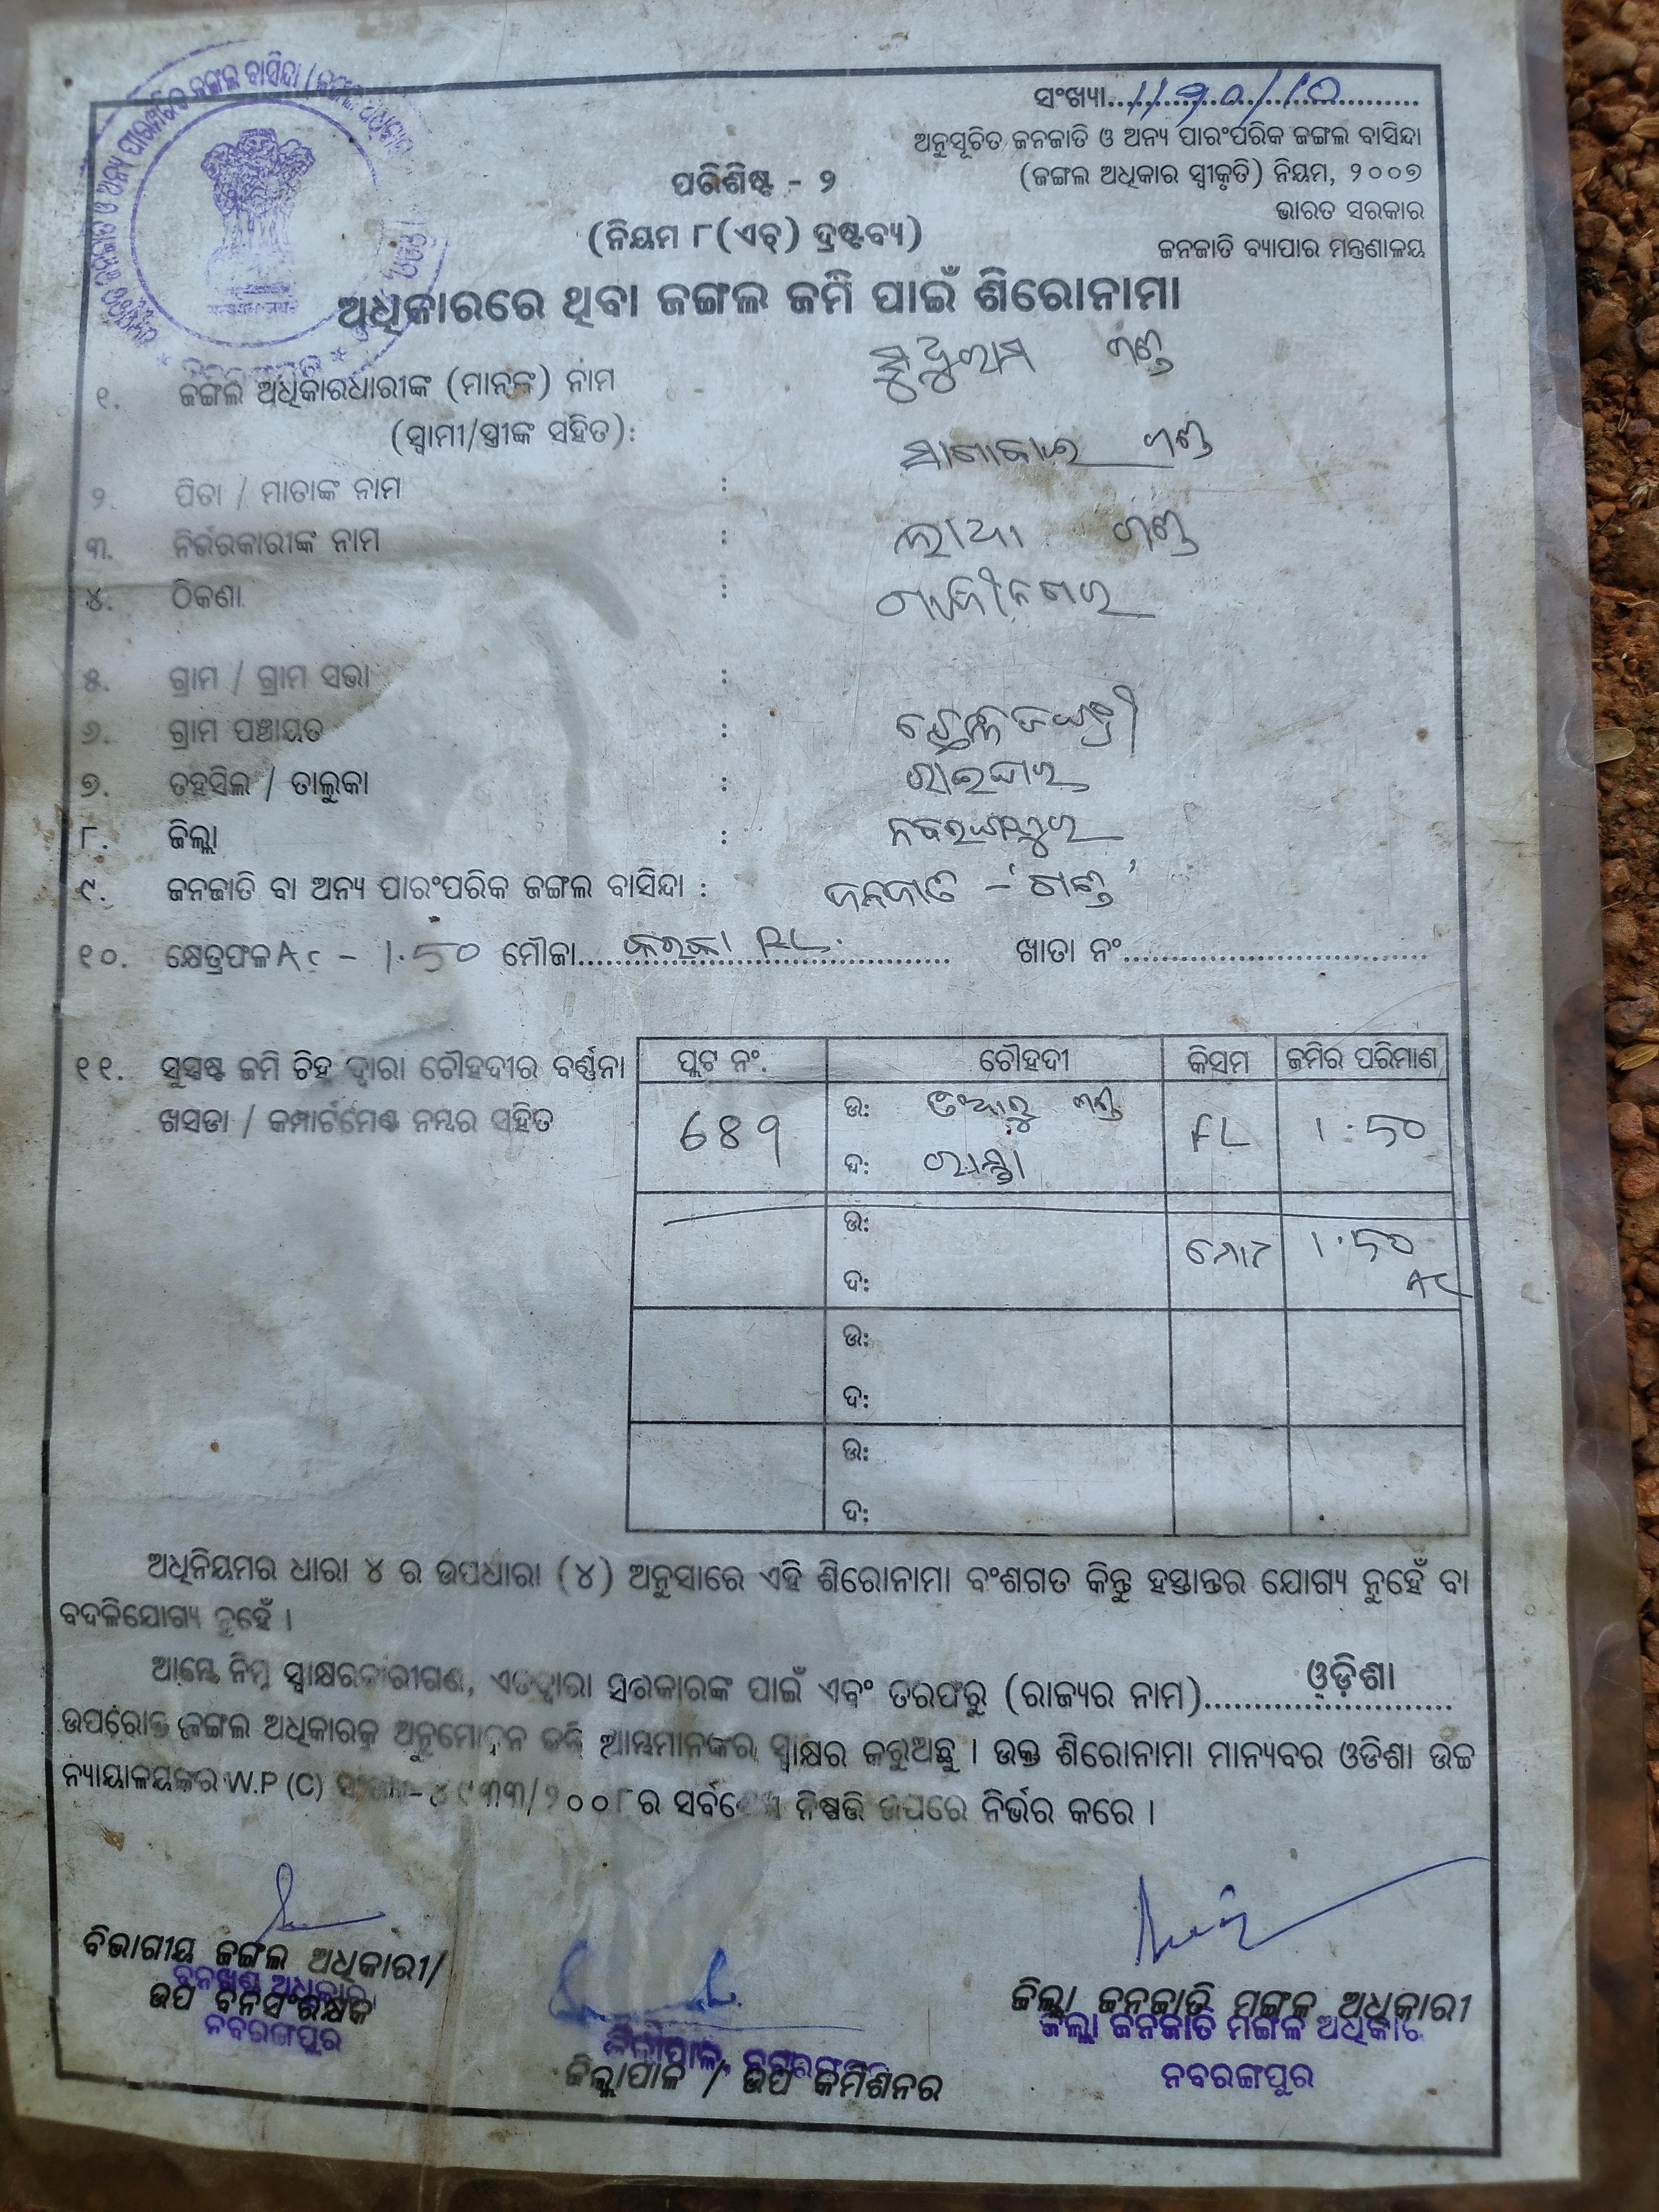 ସଂଖ୍ୟା....1190/10....
ଅନୁସୂଚିତ ଜନଜାତି ଓ ଅନ୍ୟ ପାରଂପରିକ ଜଙ୍ଗଲ ବାସିନ୍ଦା
(ଜଙ୍ଗଲ ଅଧିକାର ସ୍ୱୀକୃତି) ନିୟମ, ୨୦୦୭
ଭାରତ ସରକାର
ଜନଜାତି ବ୍ୟାପାର ମନ୍ତ୍ରଣାଳୟ
ପରିଶିଷ୍ଟ - ୨
(ନିୟମ ୮(ଏଚ୍) ଦ୍ରଷ୍ଟବ୍ୟ)
ଅଧିକାରରେ ଥିବା ଜଙ୍ଗଲ ଜମି ପାଇଁ ଶିରୋନାମା
୧. ଜଙ୍ଗଲ ଅଧିକାରଧାରୀଙ୍କ (ମାନଙ୍କ) ନାମ ଗଣ୍ଡ
(ସ୍ୱାମୀ/ସ୍ତ୍ରୀଙ୍କ ସହିତ): ଗଣ୍ଡ
୨. ପିତା / ମାତାଙ୍କ ନାମ :
୩. ନିର୍ଭରକାରୀଙ୍କ ନାମ : ଗଣ୍ଡ
୪. ଠିକଣା :
୫. ଗ୍ରାମ / ଗ୍ରାମ ସଭା :
୬. ଗ୍ରାମ ପଞ୍ଚାୟତ :
୭. ତହସିଲ / ତାଲୁକା : ରାଇଘର
୮. ଜିଲ୍ଲା : ନବରଙ୍ଗପୁର
୯. ଜନଜାତି ବା ଅନ୍ୟ ପାରଂପରିକ ଜଙ୍ଗଲ ବାସିନ୍ଦା : ଜନଜାତି - ‘ଗଣ୍ଡ’
୧୦. କ୍ଷେତ୍ରଫଳ Ac - 1.50 ମୌଜା.... ଖାତା ନଂ....
୧୧. ସୁସ୍ପଷ୍ଟ ଜମି ଚିହ୍ନ ଦ୍ୱାରା ଚୌହଦୀର ବର୍ଣ୍ଣନା
ଖସଡା / କମ୍ପାର୍ଟମେଣ୍ଟ ନମ୍ବର ସହିତ
ପ୍ଲଟ ନଂ. ଚୌହଦୀ କିସମ ଜମିର ପରିମାଣ
ଉ: ଗଣ୍ଡ
FL 1.50
ଦ: ରାସ୍ତା
ଉ:
ମୋଟ 1.50
ଦ: Ac
ଉ:
ଦ:
ଉ:
ଦ:
ଅଧିନିୟମର ଧାରା ୪ ର ଉପଧାରା (୪) ଅନୁସାରେ ଏହି ଶିରୋନାମା ବଂଶଗତ କିନ୍ତୁ ହସ୍ତାନ୍ତର ଯୋଗ୍ୟ ନୁହେଁ ବା
ବଦଳିଯୋଗ୍ୟ ନୁହେଁ ।
ଆମ୍ଭେ ନିମ୍ନ ସ୍ୱାକ୍ଷରକାରୀଗଣ, ଏତଦ୍ୱାରା ସରକାରଙ୍କ ପାଇଁ ଏବଂ ତରଫରୁ (ରାଜ୍ୟର ନାମ)....ଓଡ଼ିଶା....
ଉପରୋକ୍ତ ଜଙ୍ଗଲ ଅଧିକାରକୁ ଅନୁମୋଦନ କରି ଆମ୍ଭମାନଙ୍କର ସ୍ୱାକ୍ଷର କରୁଅଛୁ । ଉକ୍ତ ଶିରୋନାମା ମାନ୍ୟବର ଓଡିଶା ଉଚ୍ଚ
ନ୍ୟାୟାଳୟଙ୍କର W.P (C) ସଂଖ୍ୟା-୪୯୩୩/୨୦୦୮ର ସର୍ବଶେଷ ନିଷ୍ପତ୍ତି ଉପରେ ନିର୍ଭର କରେ ।
ବିଭାଗୀୟ ଜଙ୍ଗଲ ଅଧିକାରୀ/
ବନଖଣ୍ଡ ଅଧିକାରୀ
ଉପ ବନସଂରକ୍ଷକ
ନବରଙ୍ଗପୁର
ଜିଲ୍ଲାପାଳ, ନବରଙ୍ଗପୁର
ଜିଲ୍ଲାପାଳ / ଉପ କମିଶନର
ଜିଲ୍ଲା ଜନଜାତି ମଙ୍ଗଳ ଅଧିକାରୀ
ଜିଲ୍ଲା ଜନଜାତି ମଙ୍ଗଳ ଅଧିକାରୀ
ନବରଙ୍ଗପୁର